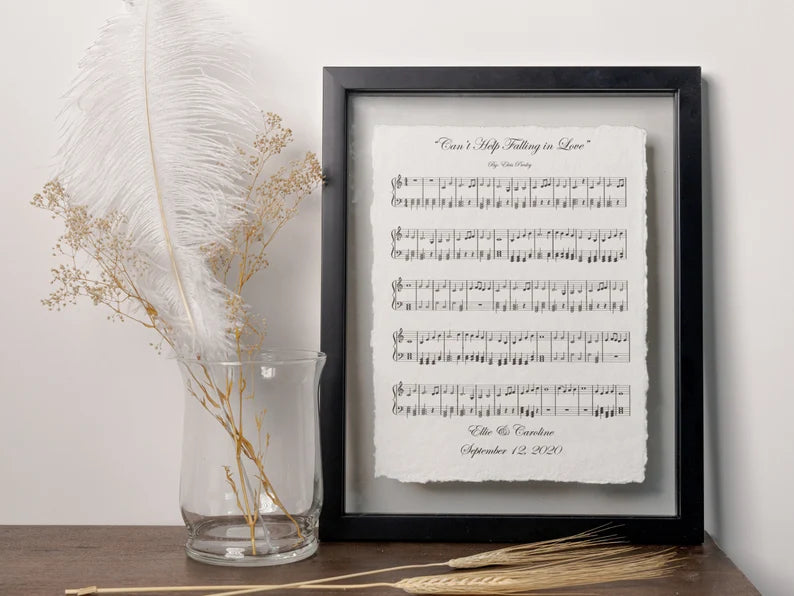 "Can't Help Falling in Love"
By: Elvis Presley
Ellie & Caroline
September 12, 2020